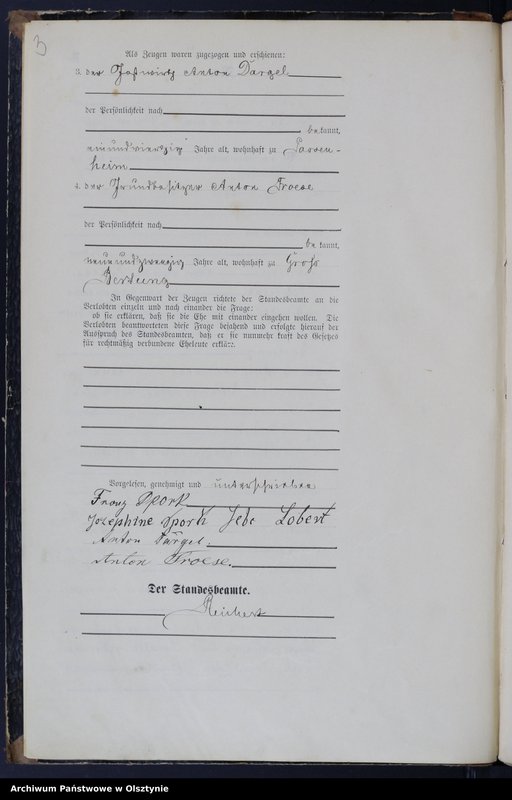 3
Als Zeugen waren zugezogen und erschienen:
3. der Gastwirth Anton Dargel
der Persönlichkeit nach
be kannt,
einundvierzig Jahre alt, wohnhaft zu Passen-
heim
4. der Grundbesitzer Anton Troese
der Persönlichkeit nach
be kannt,
neunundzwanzig Jahre alt, wohnhaft zu Groß
Bertung
In Gegenwart der Zeugen richtete der Standesbeamte an die
Verlobten einzeln und nach einander die Frage:
ob sie erklären, daß sie die Ehe mit einander eingehen wollen. Die
Verlobten beantworteten diese Frage bejahend und erfolgte hierauf der
Ausspruch des Standesbeamten, daß er sie nunmehr kraft des Gesetzes
für rechtmäßig verbundene Eheleute erkläre.
Vorgelesen, genehmigt und unterschrieben
Franz Spork
Josephine Spork geb Lobert
Anton Dargel.
Anton Troese.
Der Standesbeamte.
Reichert
Archiwum Państwowe w Olsztynie